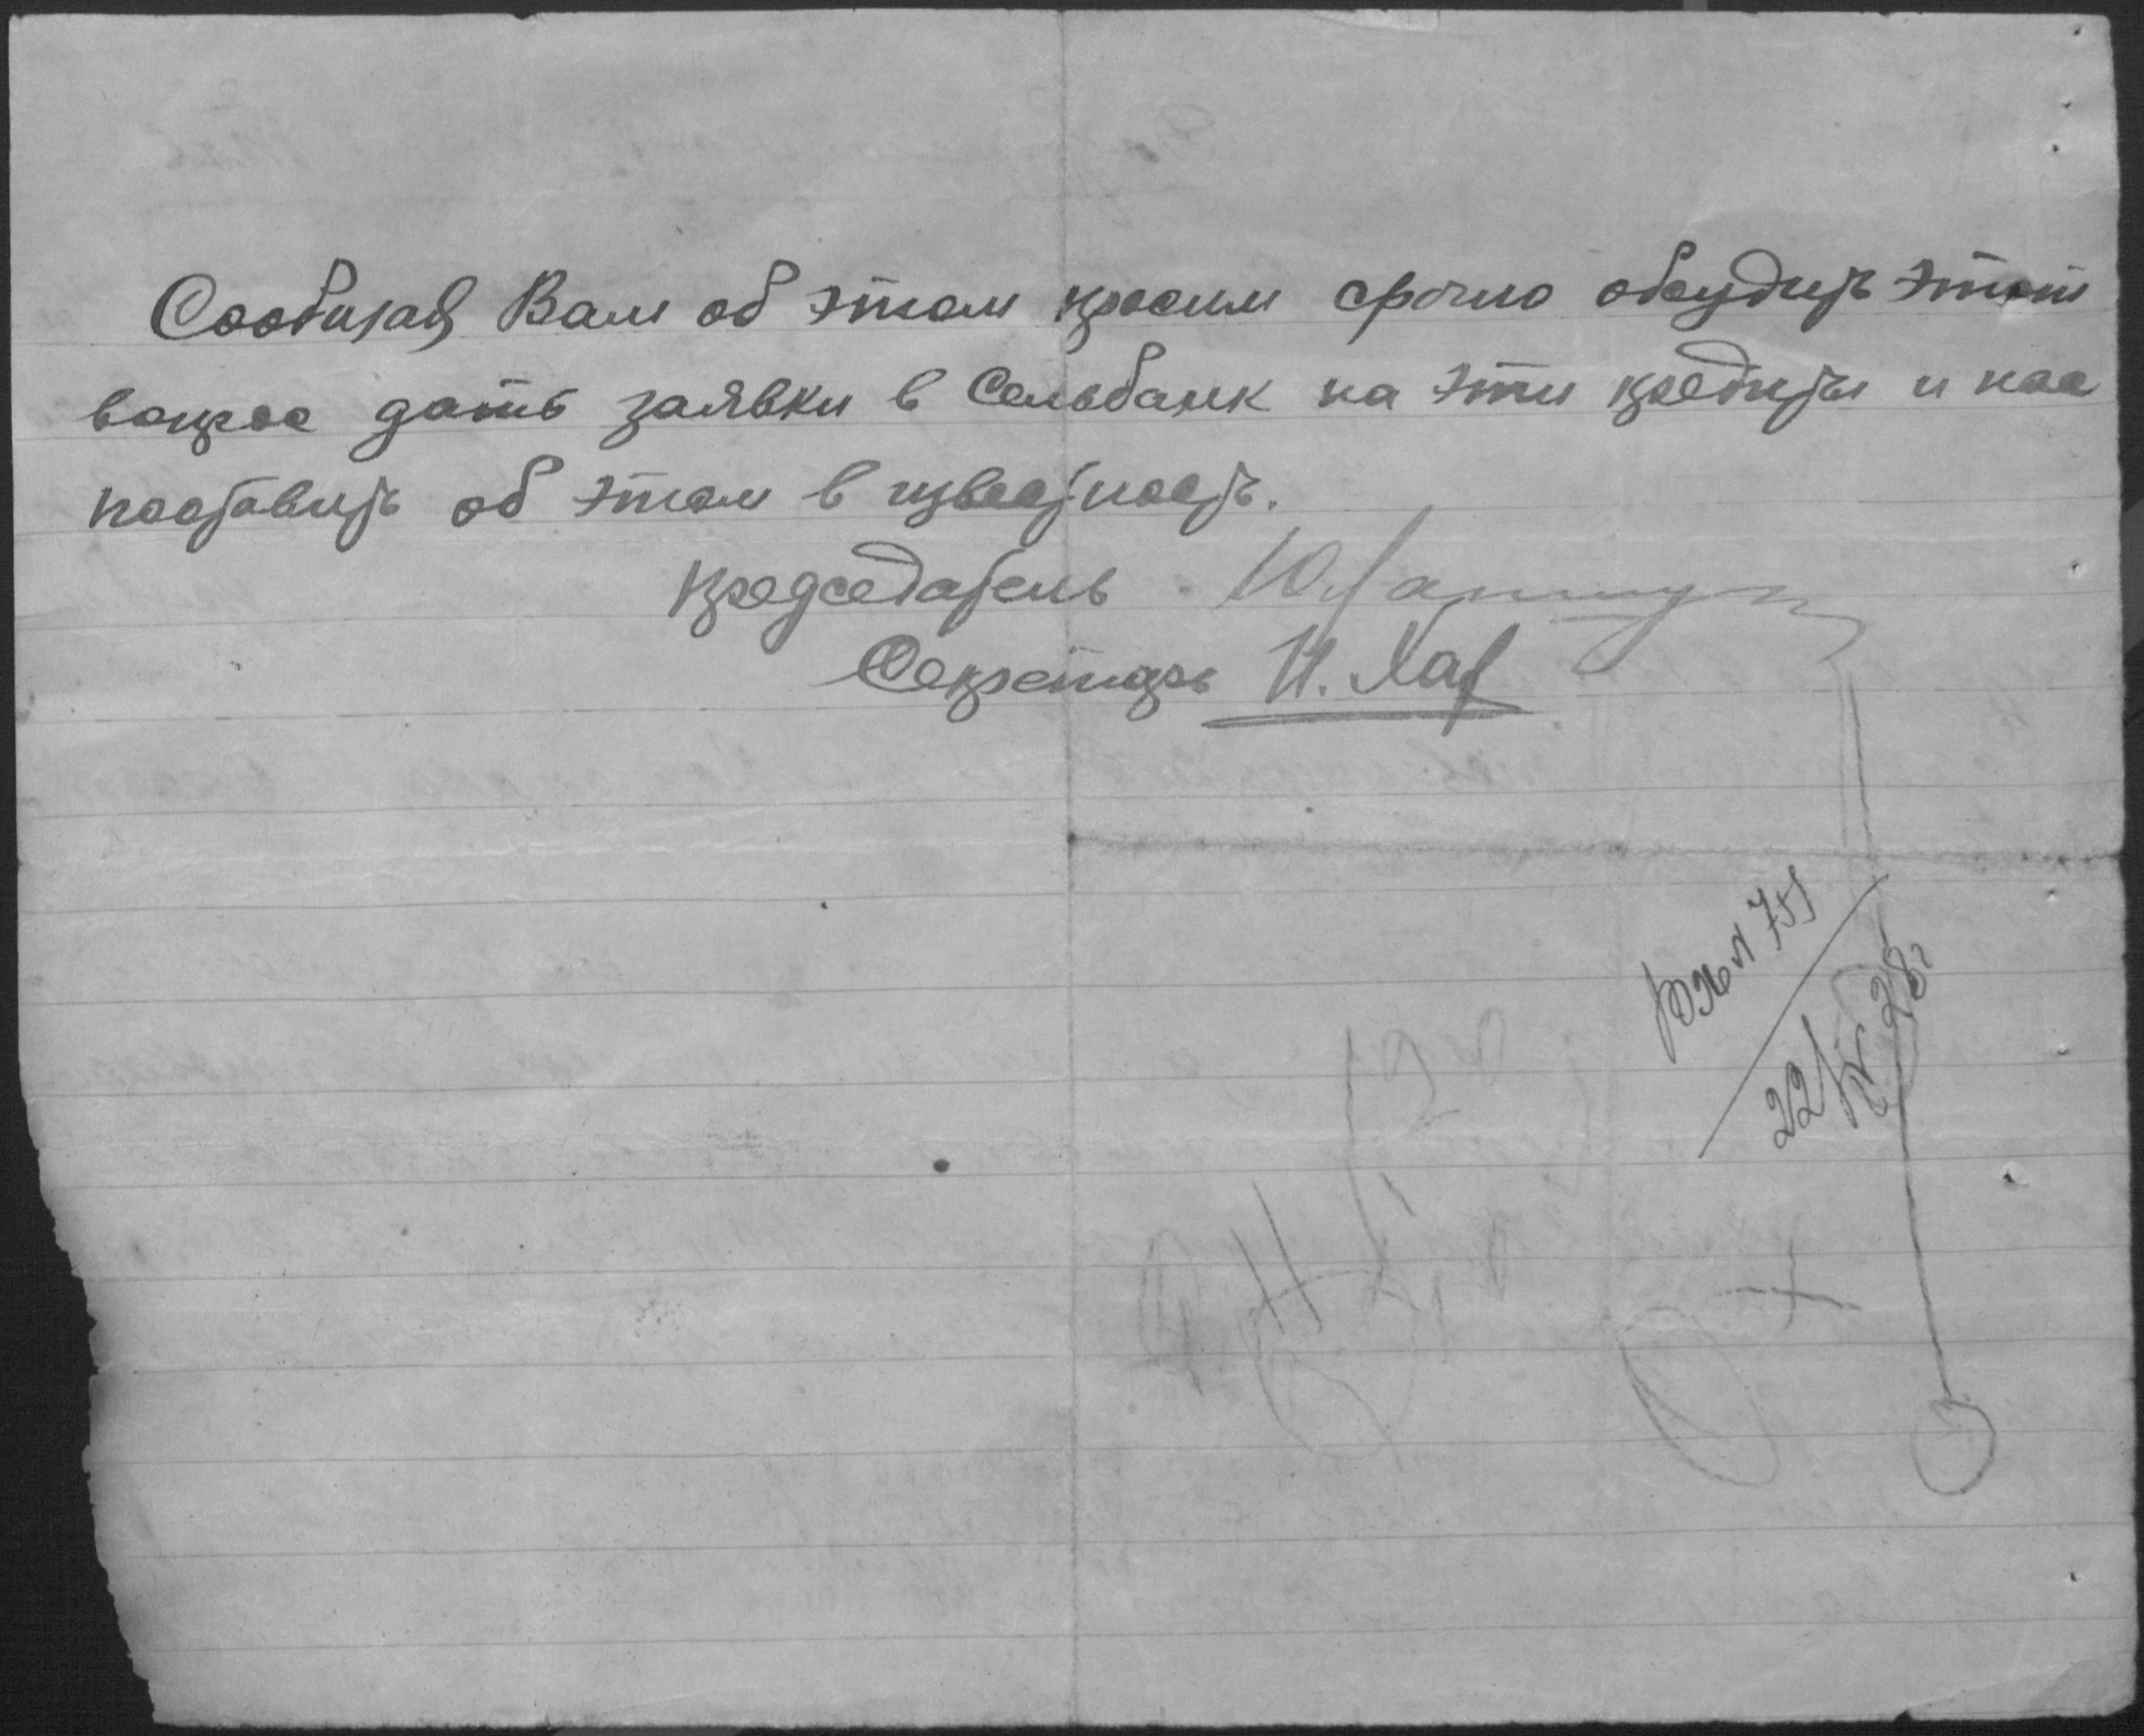 Сообщая Вам об этом просим срочно обсудить этот
вопрос дать заявки в Сельбанк на эти кредиты и нас
поставить об этом в известность.
Председатель
Секретарь И. Хаг
22/IV 28г